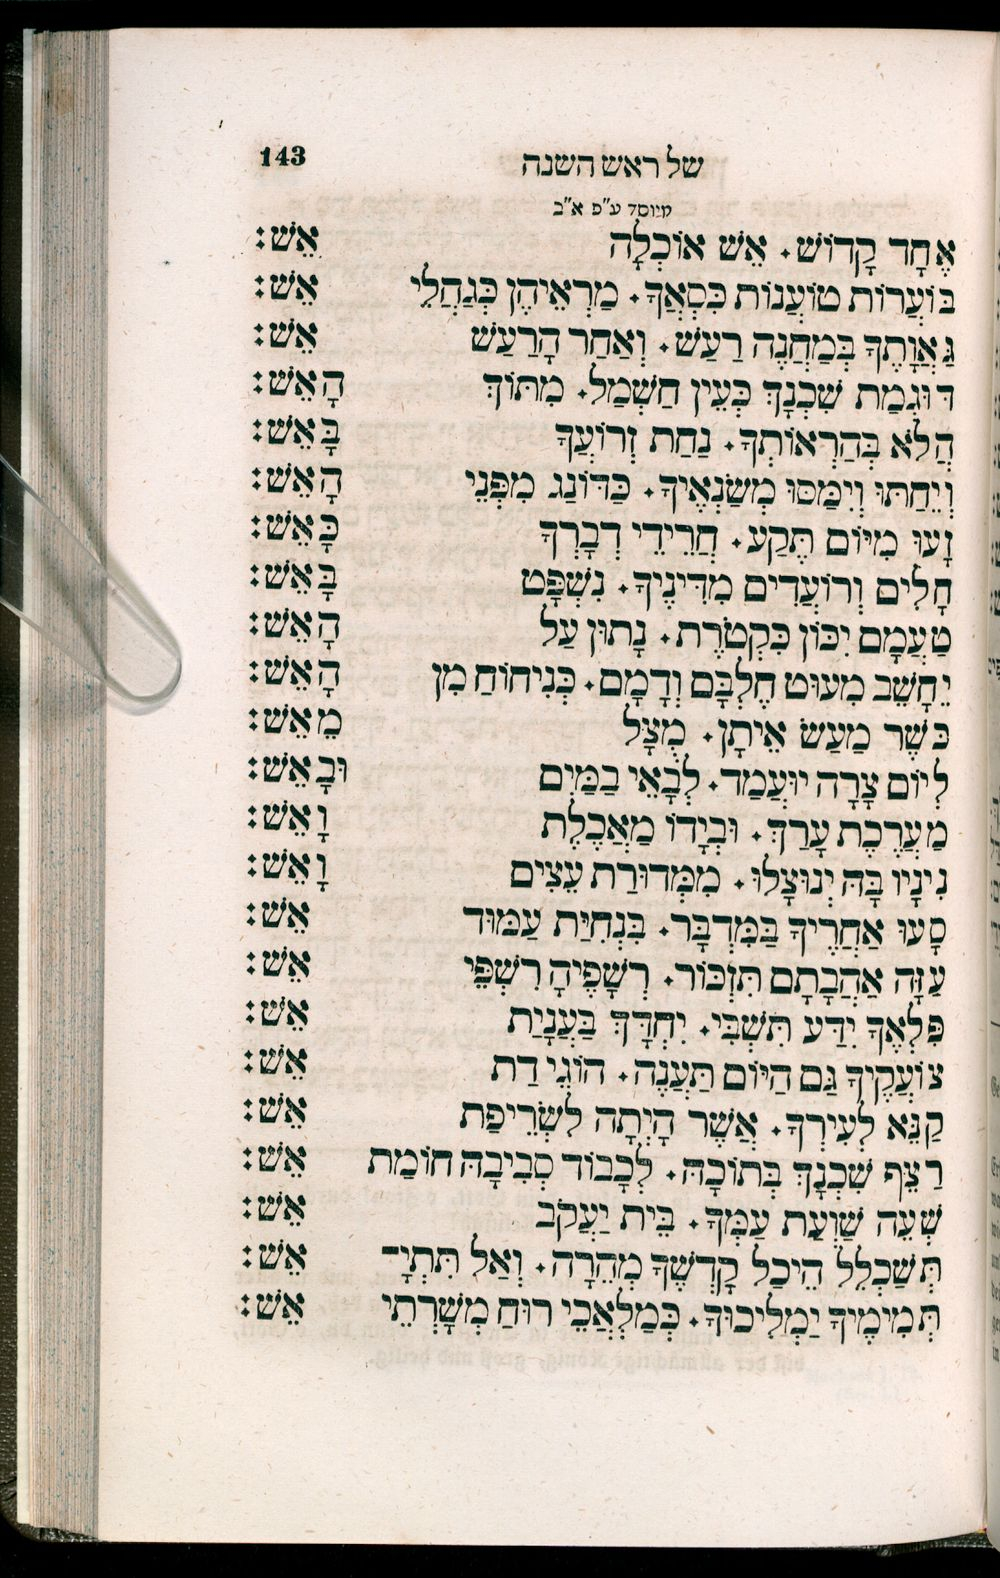 143 של ראש השנה
מיוסד ע״פ א״ב
אֶחָד קָדוֹשׁ. אֵשׁ אוֹכְלָה אֵשׁ:
בּוֹעֲרוֹת טוֹעֲנוֹת כִּסְאֲךָ. מַרְאֵיהֶן כְּגַחֲלֵי אֵשׁ:
גַּאֲוָתְךָ בְּמַחֲנֶה רַעַשׁ. וְאַחַר הָרַעַשׁ אֵשׁ:
דּוּגְמַת שִׁכְנָךְ כְּעֵין חַשְׁמַל. מִתּוֹךְ הָאֵשׁ:
הֲלֹא בְּהַרְאוֹתְךָ. נַחַת זְרוֹעֲךָ בָּאֵשׁ:
וְיֵחַתּוּ וְיִמַּסּוּ מְשַׂנְאֶיךָ. כַּדּוֹנַג מִפְּנֵי הָאֵשׁ:
זָעוּ מִיּוֹם תֶּקַע. חֲרֵידֵי דְבָרְךָ כָּאֵשׁ:
חָלִים וְרוֹעֲדִים מִדִּינֶיךָ. נִשְׁפָּט בָּאֵשׁ:
טַעֲמָם יִכּוֹן כִּקְטֹרֶת. נָתוּן עַל הָאֵשׁ:
יֵחָשֵׁב מִעוּט חֶלְבָּם וְדָמָם. כְּנִיחוֹחַ מִן הָאֵשׁ:
כּשֶׁר מַעַשׂ אֵיתָן. מֻצָּל מֵאֵשׁ:
לְיוֹם צָרָה יוּעֲמַד. לְבָאֵי בַמַּיִם וּבָאֵשׁ:
מַעֲרֶכֶת עָרַךְ. וּבְיָדוֹ מַאֲכֶלֶת וָאֵשׁ:
נִינָיו בָּהּ יְנוּצָלוּ. מִמְּדוּרַת עֵצִים וָאֵשׁ:
סָעוּ אַחֲרֶיךָ בַּמִּדְבָּר. בִּנְחִיַּת עַמּוּד אֵשׁ:
עַזָּה אַהֲבָתָם תִּזְכּוֹר. רְשָׁפֶיהָ רִשְׁפֵּי אֵשׁ:
פִּלְאֲךָ יִדַּע תִּשְׁבִּי. יִחְדָּךְ בַּעֲנָיַת אֵשׁ:
צוֹעֲקֶיךָ גַּם הַיּוֹם תַּעֲנֶה. הוֹגֵי דַת אֵשׁ:
קַנֵּא לְעִירְךָ. אֲשֶׁר הָיְתָה לִשְׂרֵיפַת אֵשׁ:
רַצֵּף שִׁכְנָךְ בְּתוֹכָהּ. לְכָבוֹד סְבִיבָהּ חוֹמַת אֵשׁ:
שְׁעֵה שַׁוְעַת עַמְּךָ. בֵּית יַעֲקֹב אֵשׁ:
תְּשַׁכְלֵל הֵיכַל קָדְשֶׁךָ מְהֵרָה. וְאַל תִּתְיָ־ אֵשׁ:
תְּמִימֶיךָ יַמְלִיכוּךָ. כְּמַלְאֲכֵי רוּחַ מְשָׁרְתֵי אֵשׁ: